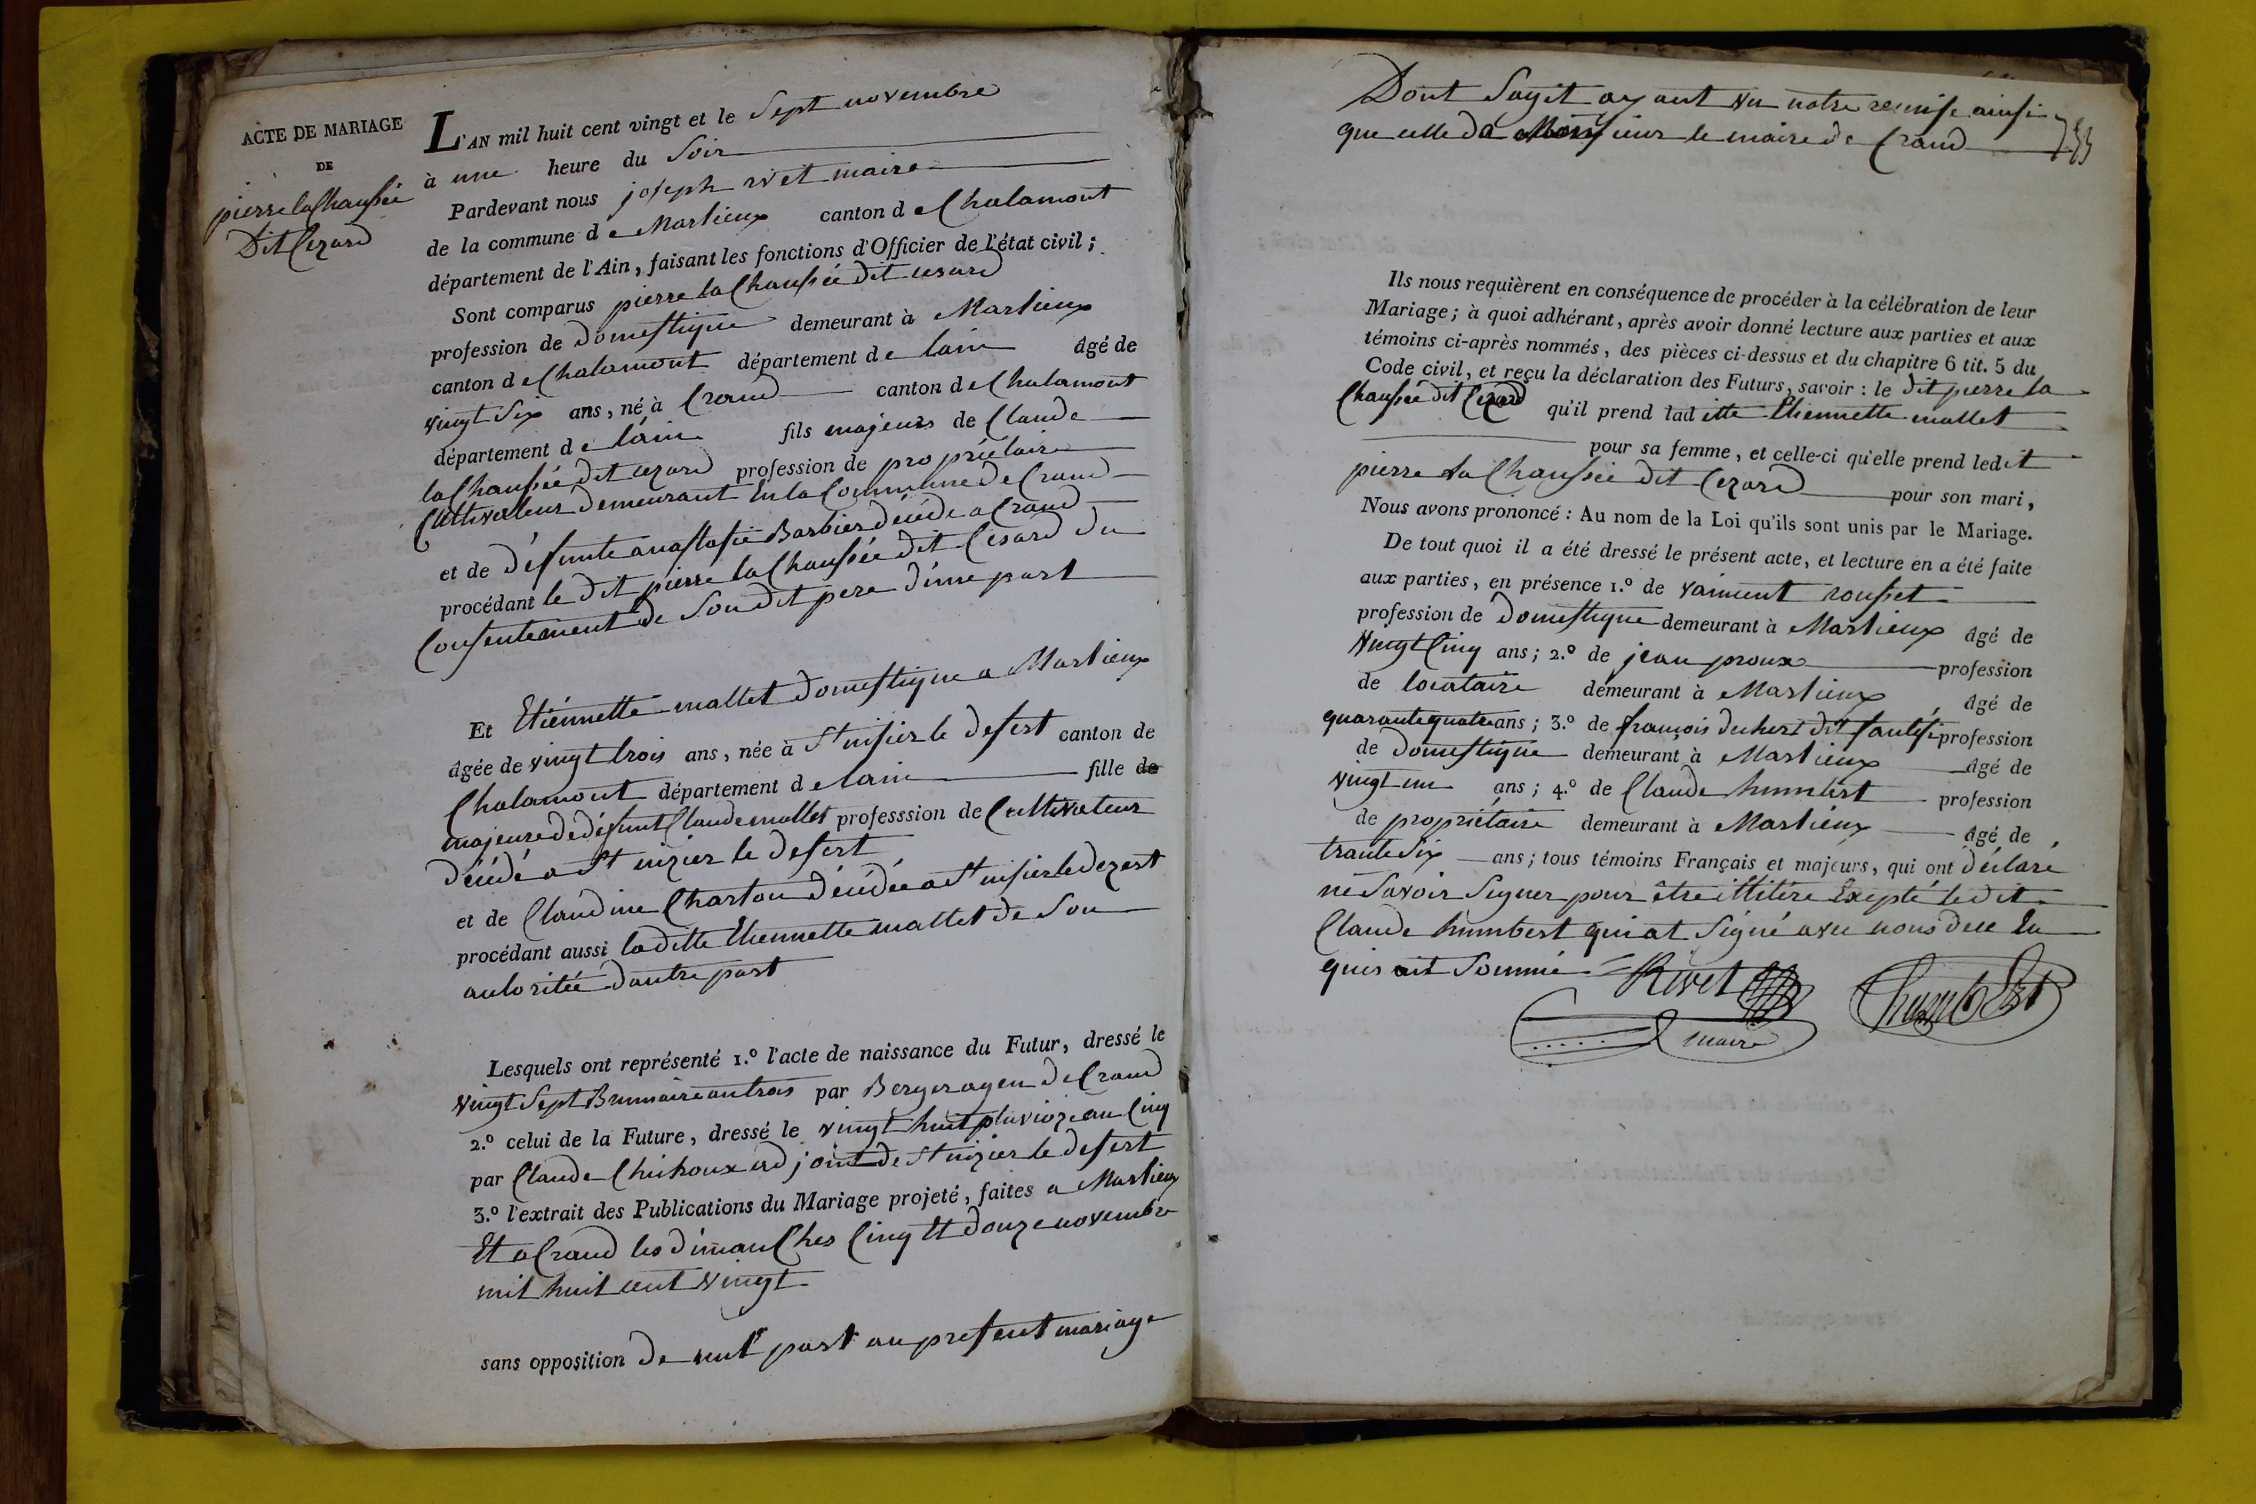 ACTE DE MARIAGE
DE
pierre la Chaussée
Dit Cezard
L'AN mil huit cent vingt et le Sept novembre
à une heure du Soir
Pardevant nous joseph rivet maire
de la commune de Marlieux canton de Chalamont
département de l'Ain, faisant les fonctions d'Officier de l'état civil;
Sont comparus pierre la Chaussée dit cesard
profession de domestique demeurant à Marlieux
canton de Chalamont département de lain âgé de
vingt Six ans, né à Crand canton de Chalamont
département de l'ain fils majeurs de Claude
la Chaussée dit cezard profession de propriétaire
Cultivateur demeurant En la Commune de Crand
et de défunte anastasie Barbier décédé a Crand
procédant le dit pierre la Chaussée dit Cesard du
Consentement de Son dit pere d'une part
Et Etiénnette mallet domestique a Marlieux
âgée de vingt trois ans, née à St nisier le desert canton de
Chalamont département de lain fille de
majeure de défunt Claude mallet professsion de Cultivateur
décédé a St nizier le desert
et de Claudine Charton décédée a St nisier le dezert
procédant aussi la ditte Etiennette mallet de Son
autoritée d'autre part
Lesquels ont représenté 1.º l'acte de naissance du Futur, dressé le
vingt Sept Brumaire an trois par Berger agen de Crand
2.º celui de la Future, dressé le vingt huit pluvioze an Cinq
par Claude Chichoux adjoint de St nizier le desert
3.º l'extrait des Publications du Mariage projeté, faites a Marlieux
Et a Crand les dimanches Cinq Et douze novembre
mil huit cent vingt
sans opposition de nul part au present mariage
Dont Sagit ayant vu notre remise ainsi
que celle de Monsieur le maire de Crand
Ils nous requièrent en conséquence de procéder à la célébration de leur
Mariage; à quoi adhérant, après avoir donné lecture aux parties et aux
témoins ci-après nommés, des pièces ci-dessus et du chapitre 6 tit. 5 du
Code civil, et reçu la déclaration des Futurs, savoir: le dit pierre la
Chaussée dit Cezard qu'il prend laditte Etiennette mallet
pour sa femme, et celle-ci qu'elle prend ledit
pierre la Chaussée dit Cezard pour son mari,
Nous avons prononcé: Au nom de la Loi qu'ils sont unis par le Mariage.
De tout quoi il a été dressé le présent acte, et lecture en a été faite
aux parties, en présence 1.º de vaincent rousset
profession de domestique demeurant à Marlieux âgé de
vingt Cinq ans; 2.º de jean proux profession
de locataire demeurant à Marlieux âgé de
quarante quatre ans; 3.º de françois ducher dit profession
de domestique demeurant à Marlieux âgé de
vingt un ans; 4.º de Claude humbert profession
de propriétaire demeurant à Marlieux âgé de
trante Six ans; tous témoins Français et majeurs, qui ont déclaré
ne Savoir Signer pour être illitére Excepté le dit
Claude humbert qui at Signé avec nous de ce En
quis ait Sommé Rivet humbert
maire